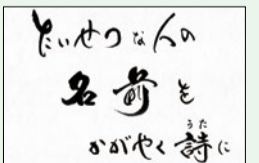 たいせつな人の
名前を
かがやく詩に
うた